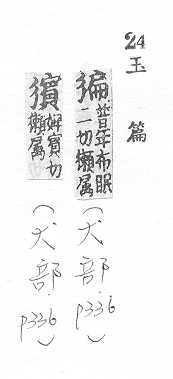 24
玉篇
猵 普年布眠
二切獺属
(犬部.P336)
獱 婢賓切
獺属
(犬部.P336)